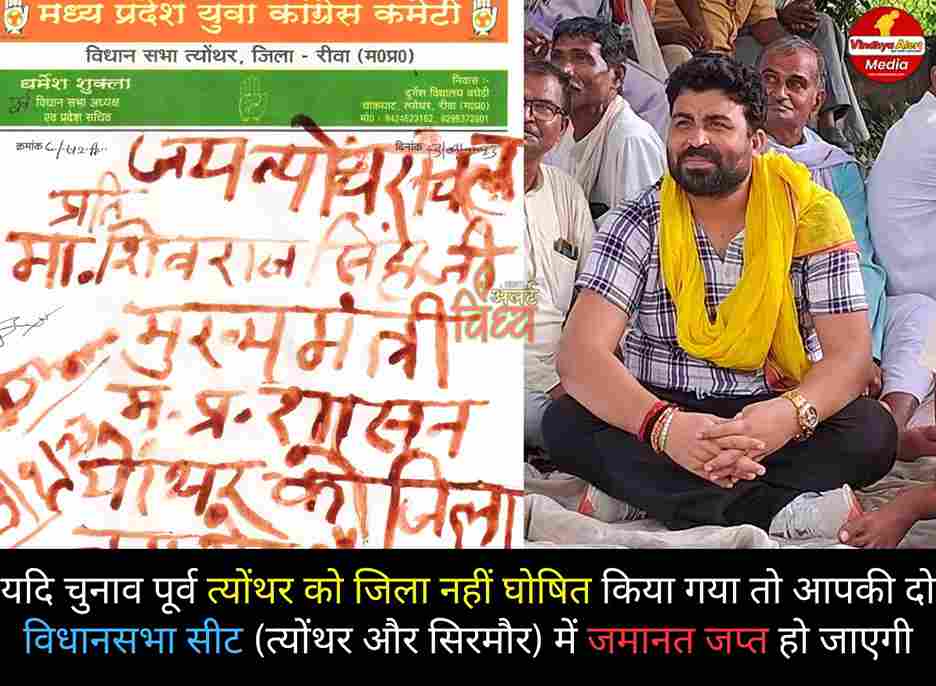 मध्य प्रदेश युवा कांग्रेस कमेटी
विधान सभा त्योंथर, जिला - रीवा (म०प्र०)
धर्मेश शुक्ला
विधान सभा अध्यक्ष
एवं प्रदेश सचिव
निवास :-
दुर्गेश विद्यालय बघेड़ी
चाकघाट, त्योंथर, रीवा (म०प्र०)
मो0 : 9424623162, 9295372001
क्रमांक
दिनांक
जय त्योंथरांचल
प्रति
मा. शिवराज सिंह जी
मुख्यमंत्री
म. प्र. शासन
त्योंथर को जिला
अलर्ट
विंध्य
Vindhya Alert
Media
यदि चुनाव पूर्व त्योंथर को जिला नहीं घोषित किया गया तो आपकी दो
विधानसभा सीट (त्योंथर और सिरमौर) में जमानत जप्त हो जाएगी